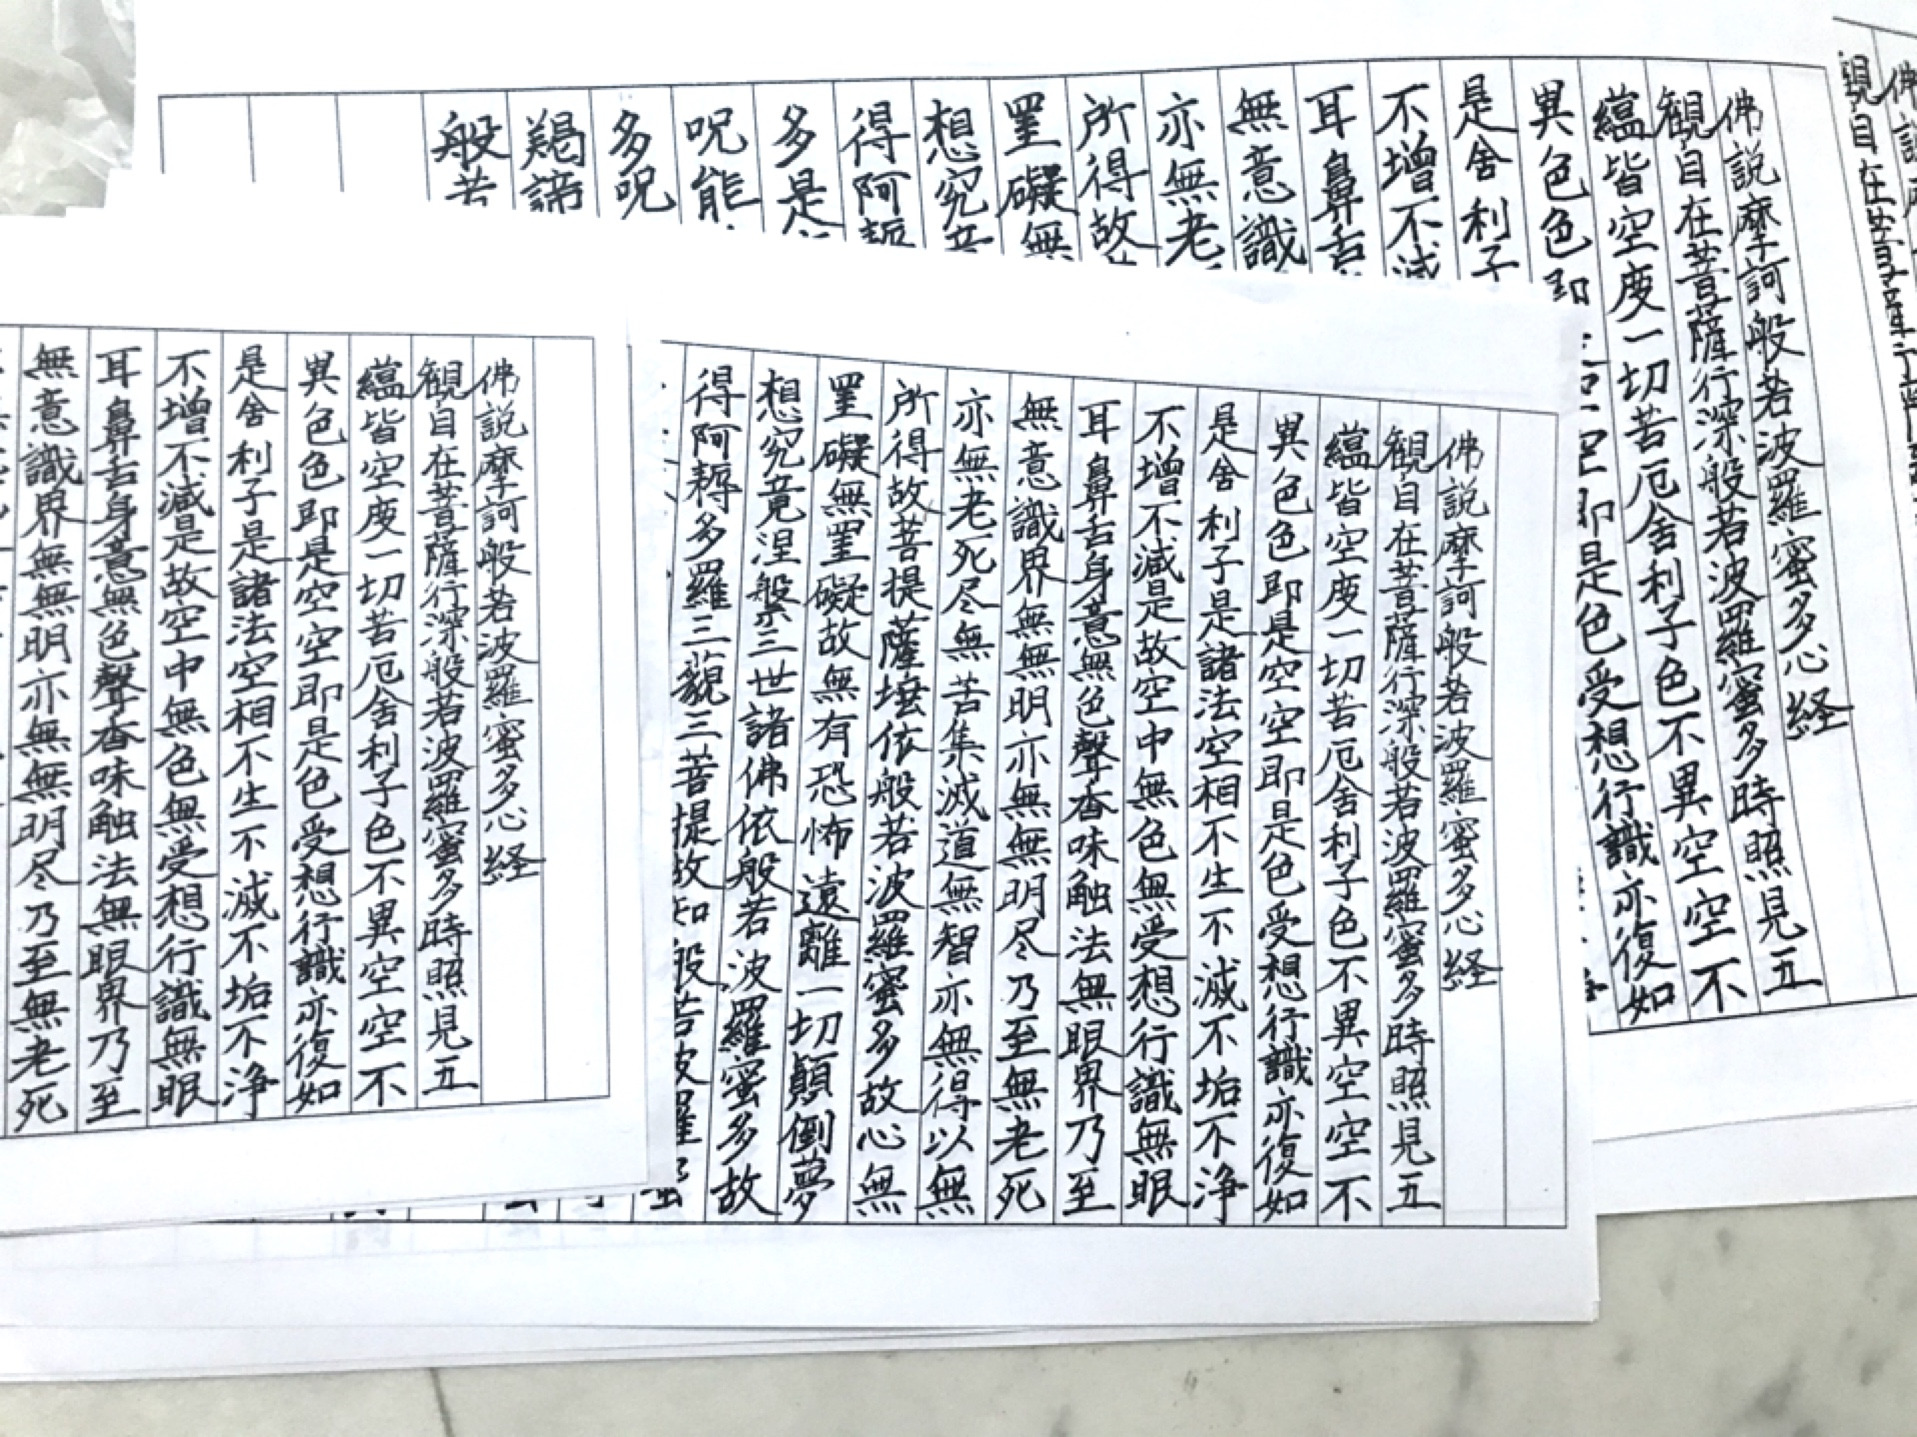 佛説摩訶般若波羅蜜多心経
観自在菩薩行深般若波羅蜜多時照見五
蘊皆空度一切苦厄舍利子色不異空空不
異色色即是空空即是色受想行識亦復如
是舍利子是諸法空相不生不滅不垢不浄
不增不減是故空中無色無受想行識無眼
耳鼻舌身意無色聲香味触法無眼界乃至
無意識界無無明亦無無明尽乃至無老死
亦無老死尽無苦集滅道無智亦無得以無
所得故菩提薩埵依般若波羅蜜多故心無
罣礙無罣礙故無有恐怖遠離一切顛倒夢
想究竟涅槃三世諸佛依般若波羅蜜多故
得阿耨多羅三藐三菩提故知般若波羅蜜
佛説摩訶般若波羅蜜多心経
観自在菩薩行深般若波羅蜜多時照見五
蘊皆空度一切苦厄舍利子色不異空空不
異色色即是空空即是色受想行識亦復如
是舍利子是諸法空相不生不滅不垢不浄
不增不減是故空中無色無受想行識無眼
耳鼻舌身意無色聲香味触法無眼界乃至
無意識界無無明亦無無明尽乃至無老死
佛説摩訶般若波羅蜜多心経
観自在菩薩行深般若波羅蜜多時照見五
蘊皆空度一切苦厄舍利子色不異空空不
異色色即是空空即是色受想行識亦復如
是舍利子
不增不減
耳鼻舌
無意識
亦無老
所得故
罣礙無
想究竟
得阿耨
多是
呪能
多呪
羯諦
般若
佛説
観自在菩薩行